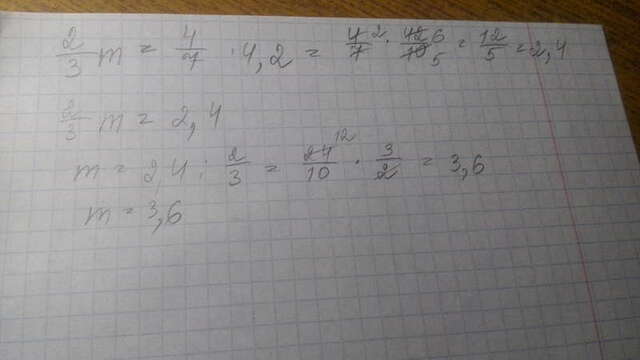 2/3 m = 4/7 · 4,2 = 4/7 2 · 42/10 6 5 = 12/5 = 2,4
2/3 m = 2,4
m = 2,4 : 2/3 = 24/10 12 · 3/2 = 3,6
m = 3,6